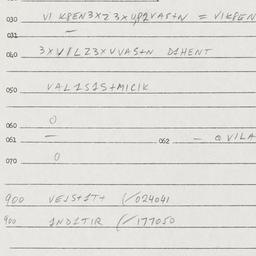 030 VI KPEN3XZ 3XUP2VAS+N = VIKPEN
031 —
040 3XVILZ3XVVAS+N D1HENT
050 VAL1S1S+MICIK
060 0
061 — 062 — Q VILA
070 0
900 VEJS+1T+ (/024041
900 1ND1TIR (/177050